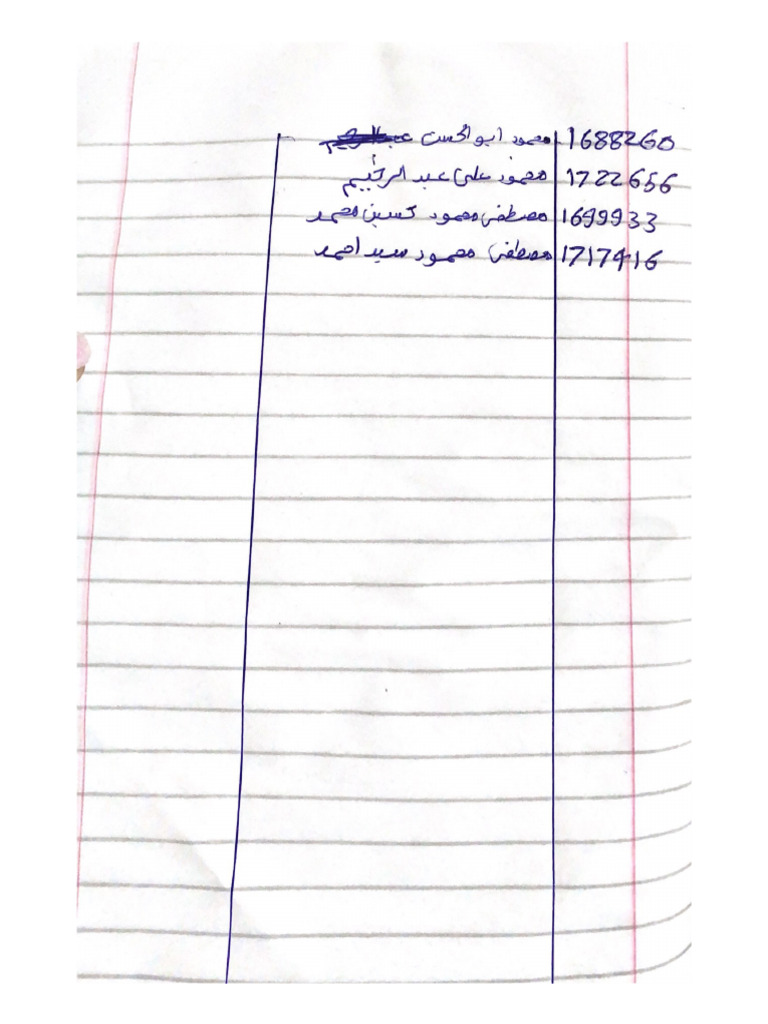 1688260 محمود ابو الحسن
1722656 محمود علي عبد الرحيم
1699933 مصطفى محمود حسين محمد
1717416 مصطفى محمود سيد احمد